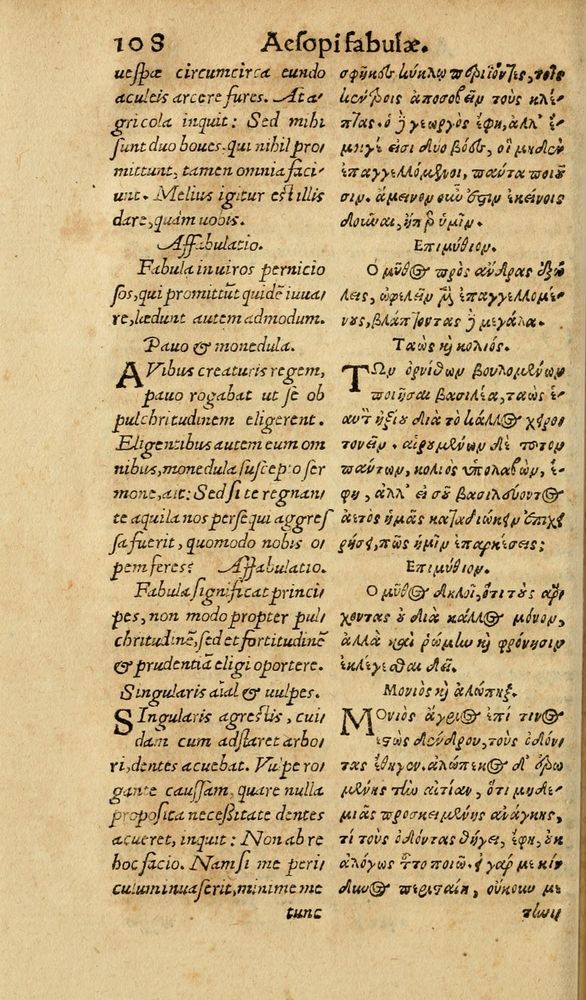 108 Aesopi fabulæ.
uespæ circumcirca eundo
aculeis arcere fures. At a⸗
gricola inquit: Sed mihi
sunt duo boues, qui nihil pro
mittunt, tamen omnia faci⸗
unt. Melius igitur est illis
dare, quàm uobis.
Affabulatio.
Fabula in uiros pernicio
sos, qui promittūt quidē iuua⸗
re, lædunt autem admodum.
Pauo & monedula.
AVibus creaturis regem,
pauo rogabat ut se ob
pulchritudinem eligerent.
Eligentibus autem eum om
nibus, monedula suscepto ser
mone, ait: Sed si te regnan⸗
te aquila nos persequi aggres
sa fuerit, quomodo nobis o⸗
pem feres? Affabulatio.
Fabula significat princi⸗
pes, non modo propter pul⸗
chritudinē, sed et fortitudinē
& prudentiā eligi oportere.
Singularis aīal & uulpes.
SIngularis agrestis, cui⸗
dam cum adstaret arbo⸗
ri, dentes acuebat. Vulpe ro⸗
gante caussam, quare nulla
proposita necessitate dentes
acueret, inquit: Non ab re
hoc facio. Nam si me peri⸗
culum inuaserit, minime me
tunc
σφῆκες κύκλῳ περιϊόντες, τοῖς
κέντροις ἀποσοβεῖν τοὺς κλέ⸗
πτας. ὁ δὲ γεωργὸς ἔφη, ἀλλ' ἔ⸗
μοιγέ εἰσι δύο βόες, οἳ μηδὲν
ἐπαγγελλόμενοι, πάντα ποιοῦ
σιν. ἄμεινον οὖν ἐστιν ἐκείνοις
δοῦναι, ἤπερ ὑμῖν.
Επιμύθιον.
Ὁ μῦθος πρὸς ἄνδρας ἐξώ
λεις, ὠφελεῖν μὲν ἐπαγγελλομέ⸗
νους, βλάπτοντας δὲ μεγάλα.
Ταὼς κὶ κολιός.
ΤΩν ὀρνίθων βουλομένων
ποιῆσαι βασιλέα, ταὼς ἑ⸗
αυτὸν ἠξίου διὰ τὸ κάλλος χειρο
τονεῖν. αἱρουμένων δὲ τοῦτον
πάντων, κολιὸς ὑπολαβὼν, ἔ⸗
φη, ἀλλ' εἰ σοῦ βασιλεύοντος
ἀετὸς ἡμᾶς καταδιώκειν ἐπιχει
ρήσει, πῶς ἡμῖν ἐπαρκέσεις;
Επιμύθιον.
Ὁ μῦθος δηλοῖ, ὅτι τοὺς ἄρ⸗
χοντας οὐ διὰ κάλλος μόνον,
ἀλλὰ καὶ ῥώμην κὶ φρόνησιν
ἐκλέγεσθαι δεῖ.
Μονιὸς κὶ ἀλώπηξ.
ΜΟνιὸς ἄγριος ἐπί τινος
ἑστὼς δένδρου, τοὺς ὀδόν⸗
τας ἔθηγον. ἀλώπεκος δ' ἐρω
μένης τὴν αἰτίαν, ὅτι μηδε⸗
μιᾶς προσκειμένης ἀνάγκης,
τί τοὺς ὀδόντας θήγει, ἔφη, οὐκ
ἀλόγως τοῦτο ποιῶ. εἰ γάρ με κίν
δυνος περισταίη, οὐκοῦν με
τίωυι